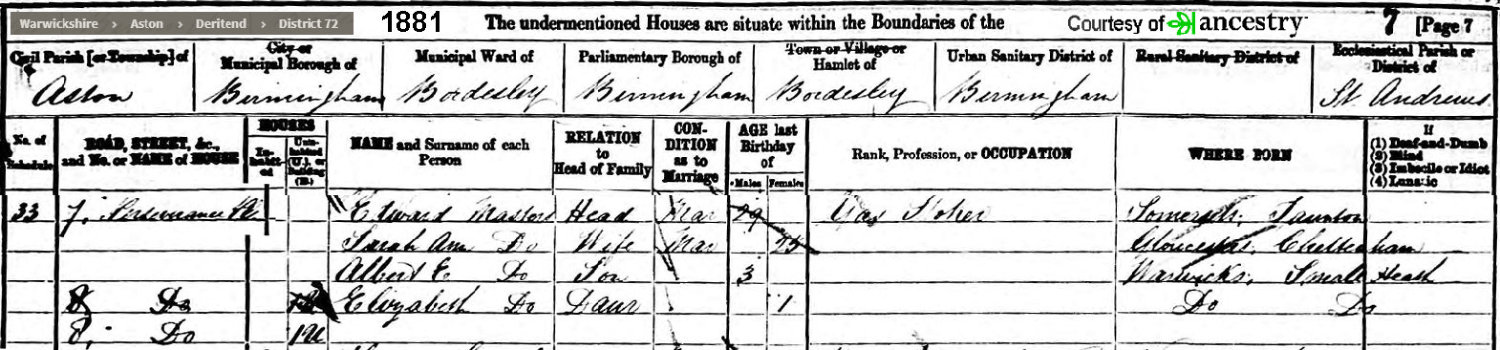 Warwickshire › Aston › Deritend › District 72
1881
The undermentioned Houses are situate within the Boundaries of the
Courtesy of ancestry
7 [Page 7
Civil Parish [or Township] of
City or Municipal Borough of
Municipal Ward of
Parliamentary Borough of
Town or Village or Hamlet of
Urban Sanitary District of
Rural Sanitary District of
Ecclesiastical Parish or District of
Aston Birmingham Bordesley Birmingham Bordesley Birmingham St. Andrews
No. of Schedule
ROAD, STREET, &c., and No. or NAME of HOUSE
HOUSES
In-habit-ed
Unin-habited (U.), or Building (B.)
NAME and Surname of each Person
RELATION to Head of Family
CON-DITION as to Marriage
AGE last Birthday of
Males Females
Rank, Profession, or OCCUPATION
WHERE BORN
If
(1) Deaf-and-Dumb
(2) Blind
(3) Imbecile or Idiot
(4) Lunatic
33 7, 1 Edward Masters Head Mar 29 Gas Stoker Somerset, Taunton
Sarah Ann Do Wife Mar 25 Gloucester, Cheltenham
Albert E Do Son 3 Warwicks, Small Heath
8 Do Elizabeth Do Daur 1 Do Do
8, Do 1U